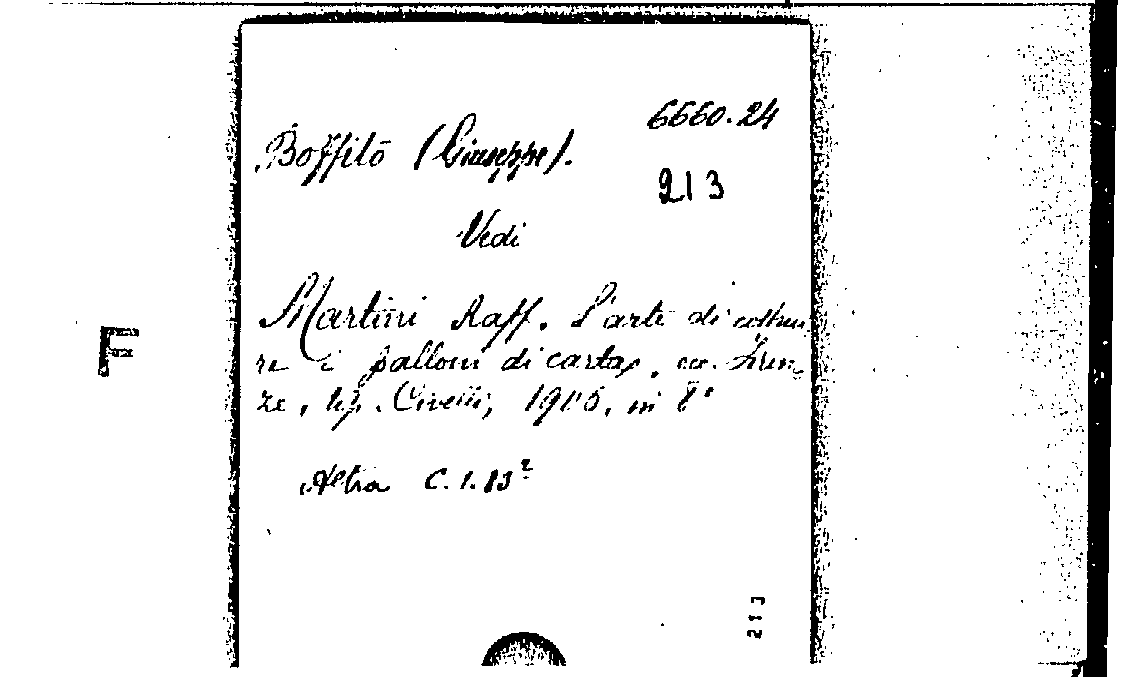 6660.24
Boffito (Giuseppe).
213
Vedi
Martini Raff. L'arte di costrui
re i palloni di carta, ecc. Firen
ze, tip. Civelli, 1906, in 8°
Altra C.1.13²
F
213